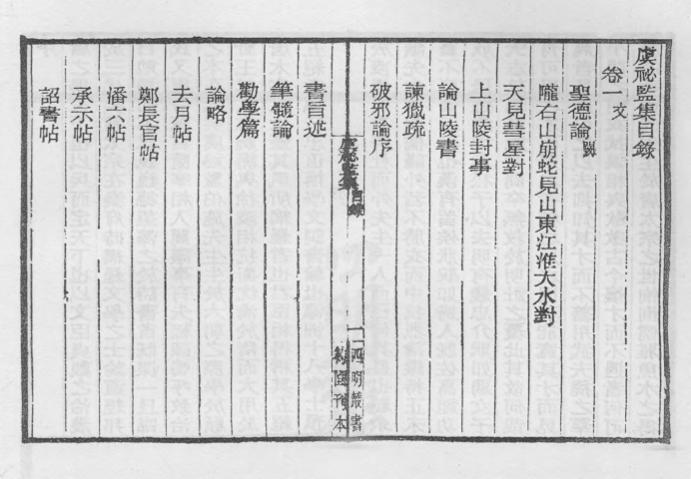 虞祕監集目錄
卷一 文
聖德論 闕
隴右山崩蛇見山東江淮大水對
天見彗星對
上山陵封事
論山陵書
諫獵疏
破邪論序
虞祕監集 目錄
一 四明叢書
約園刊本
書旨述
筆髓論
勸學篇
論略
去月帖
鄭長官帖
潘六帖
承示帖
詔書帖